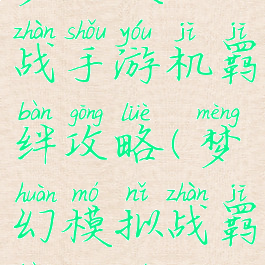 zhàn shǒu yóu jī jī
战手游机羁
bàn gōng lüè mèng
绊攻略(梦
huàn mó nǐ zhàn jī
幻模拟战羁